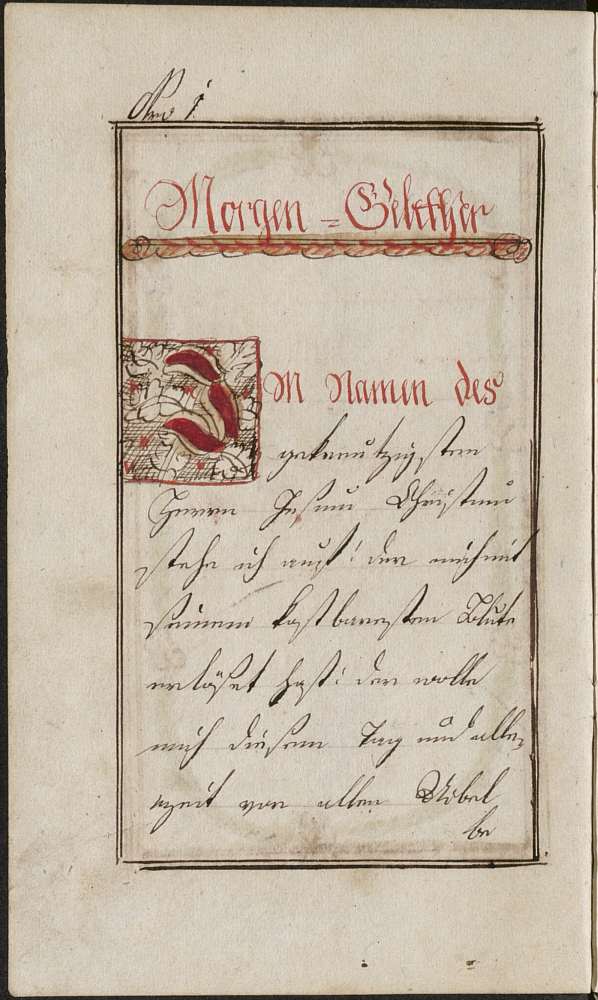 Nro 1
Morgen = Gebether
Im Namen des
gekreutzigsten
Herrn Jesum Christum
stehe ich auf! der mich mit
seinem kostbaresten Blute
erlöset hast: der wolle
mich diesem Tag und alle,
zeit von allen Uibel
be